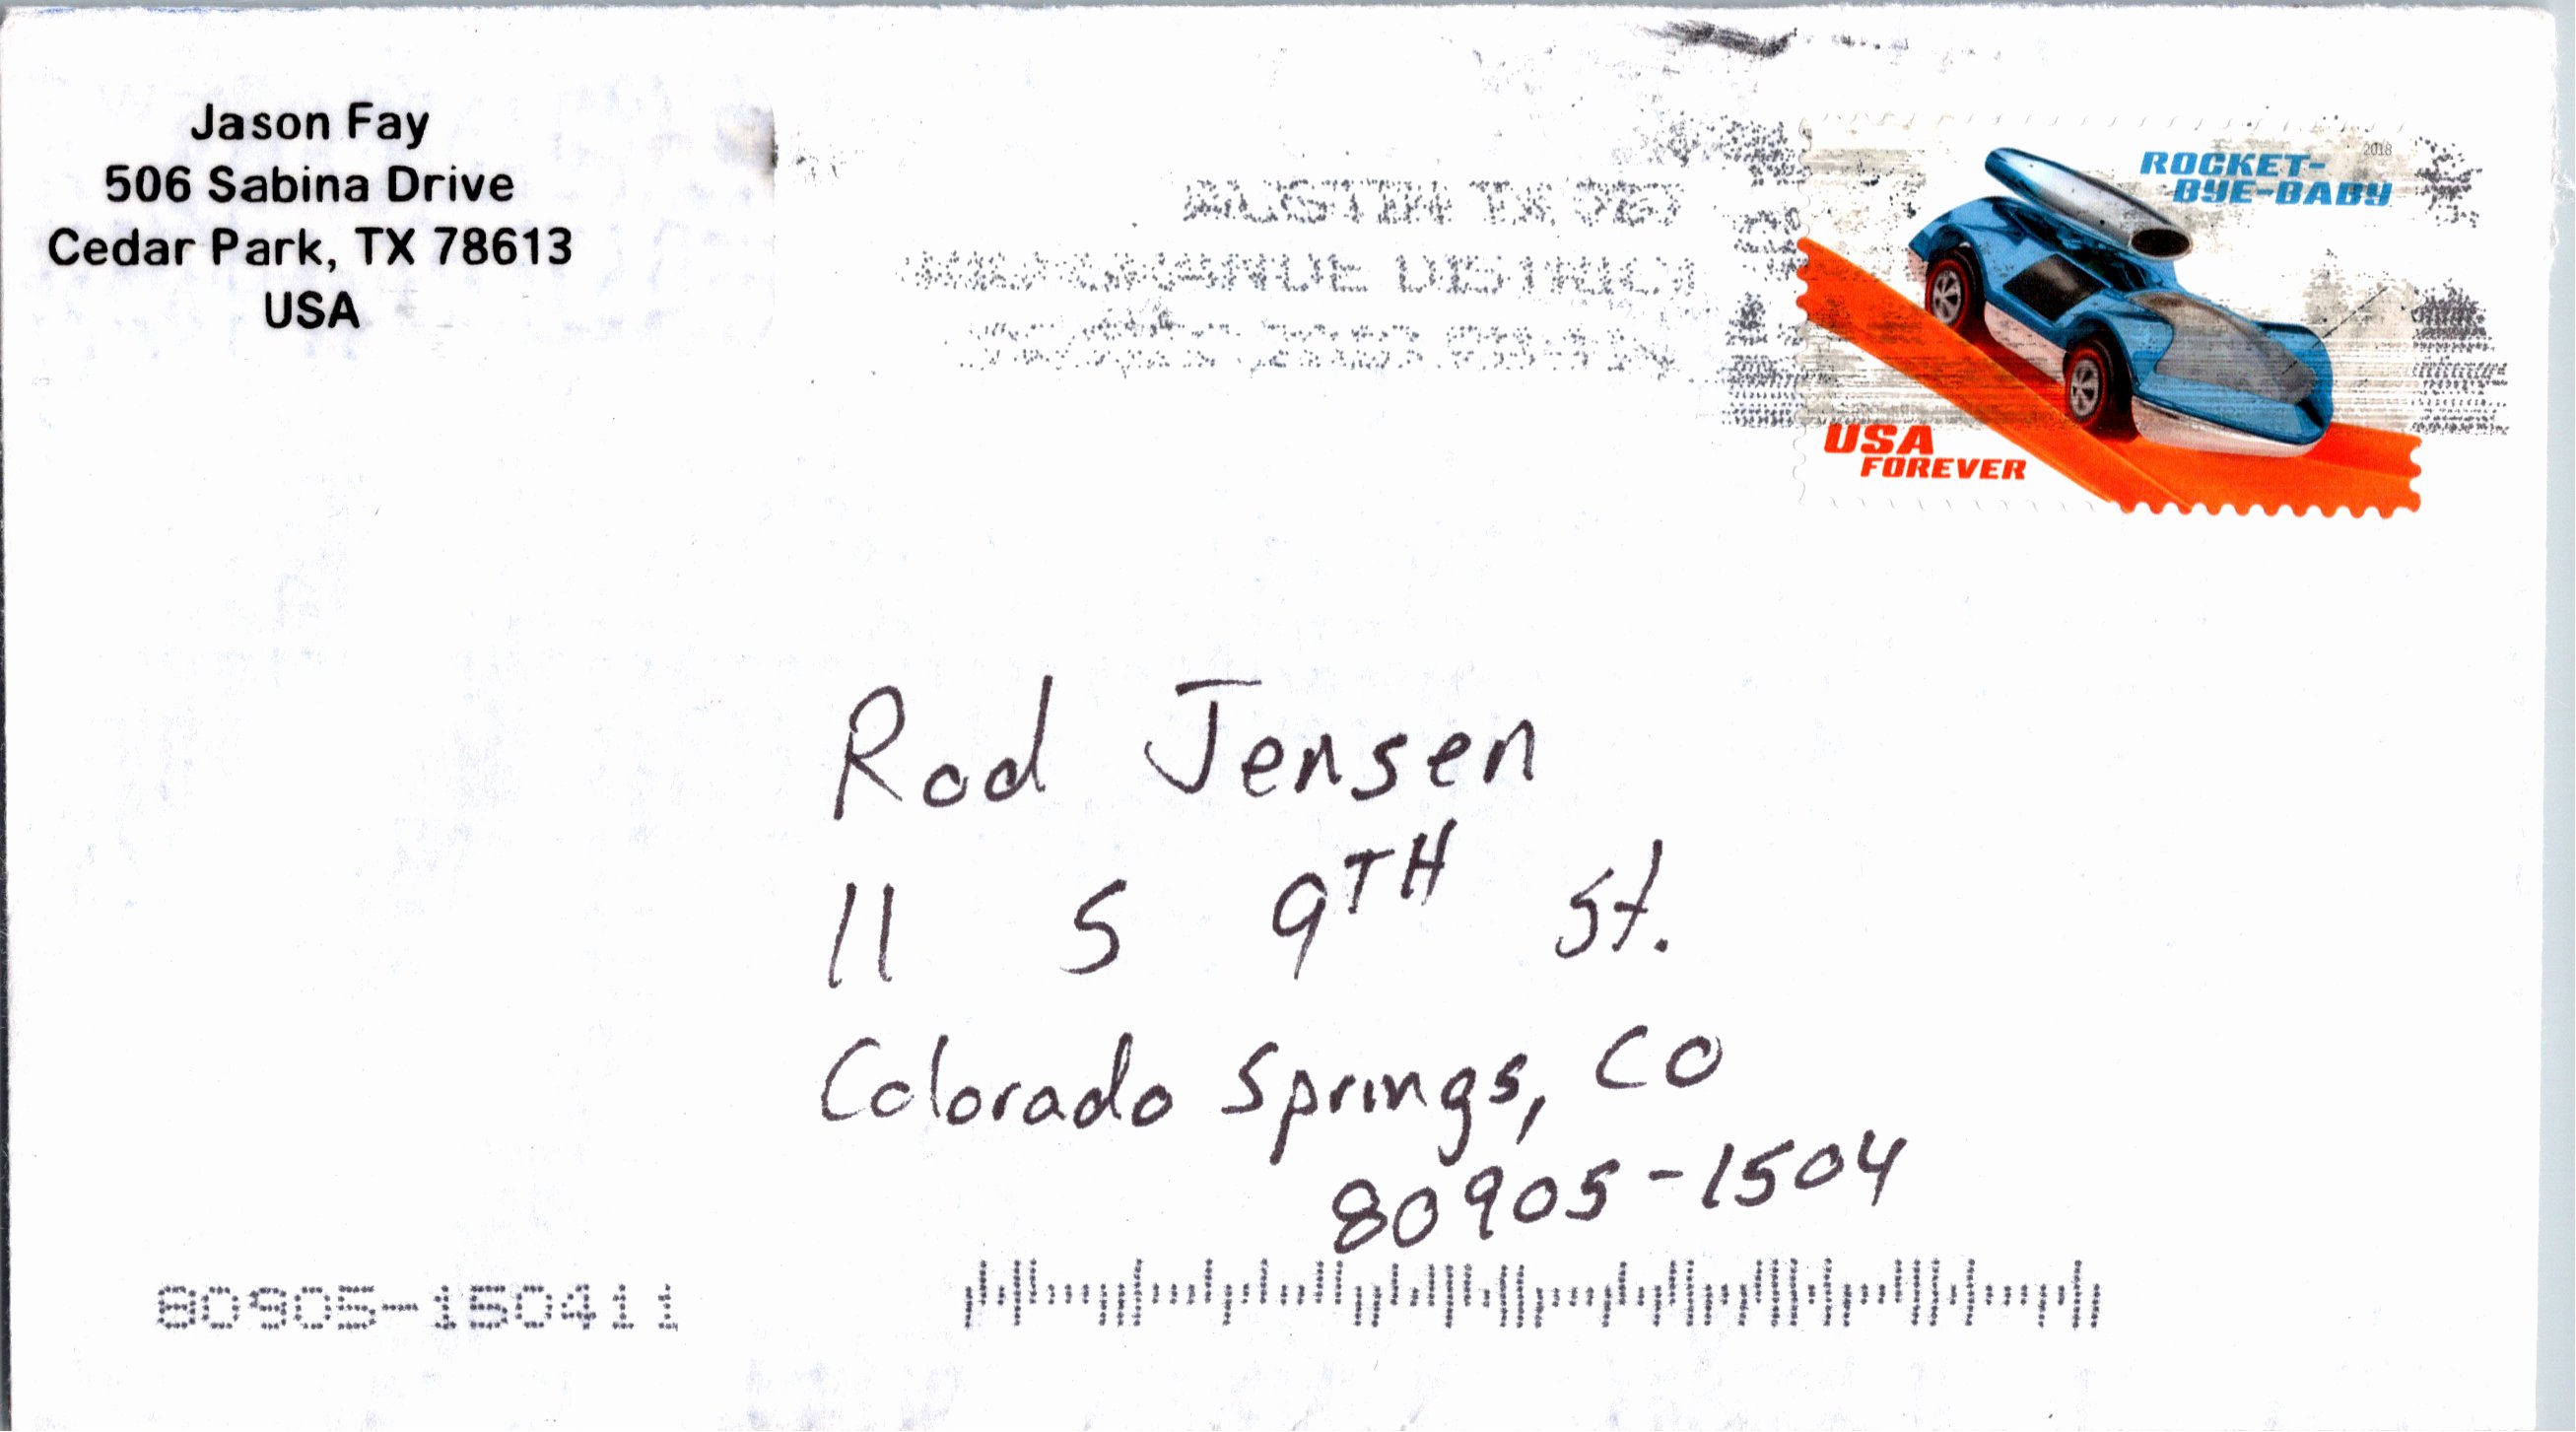 Jason Fay
506 Sabina Drive
Cedar Park, TX 78613
USA
AUSTIN TX 787
DISTRICT
2018
ROCKET-
BYE-BABY
USA
FOREVER
Rod Jensen
11 S 9TH St.
Colorado Springs, CO
80905-1504
80905-150411